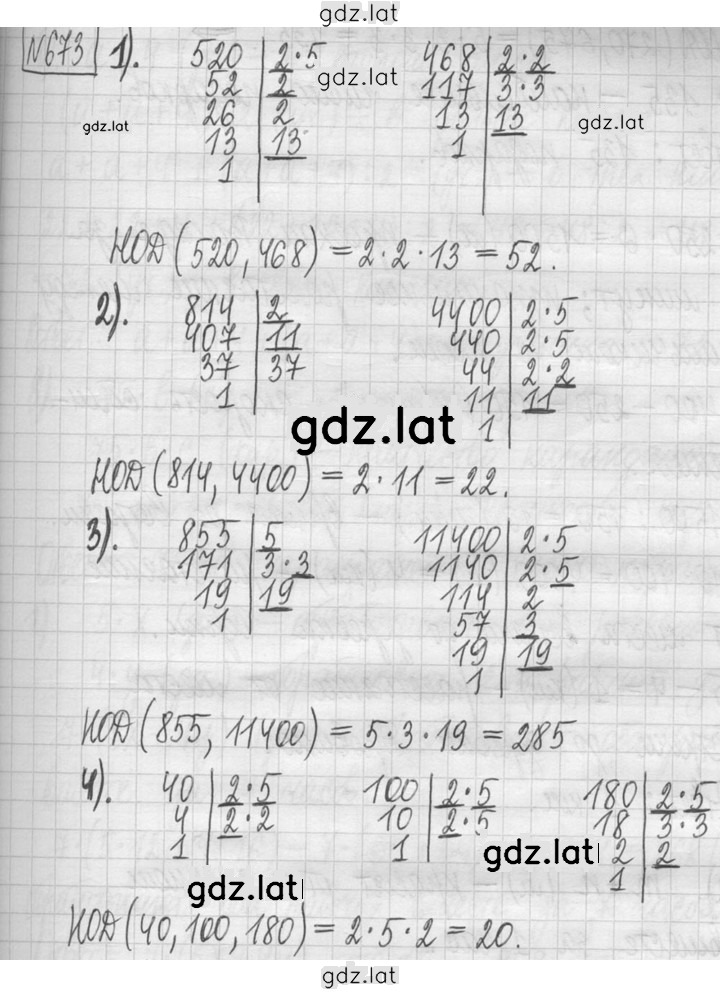 gdz.lat
N673 1). 520 | 2·5 468 | 2·2
52 | 2 gdz.lat 117 | 3·3
gdz.lat 26 | 2 13 | 13 gdz.lat
13 | 13 1
1
НОД(520, 468) = 2·2·13 = 52.
2). 814 | 2 4400 | 2·5
407 | 11 440 | 2·5
37 | 37 44 | 2·2
1 11 | 11
gdz.lat 1
НОД(814, 4400) = 2·11 = 22.
3). 855 | 5 11400 | 2·5
171 | 3·3 1140 | 2·5
19 | 19 114 | 2
1 57 | 3
19 | 19
1
НОД(855, 11400) = 5·3·19 = 285
4). 40 | 2·5 100 | 2·5 180 | 2·5
4 | 2·2 10 | 2·5 18 | 3·3
1 1 gdz.lat 2 | 2
gdz.lat 1
НОД(40, 100, 180) = 2·5·2 = 20.
gdz.lat